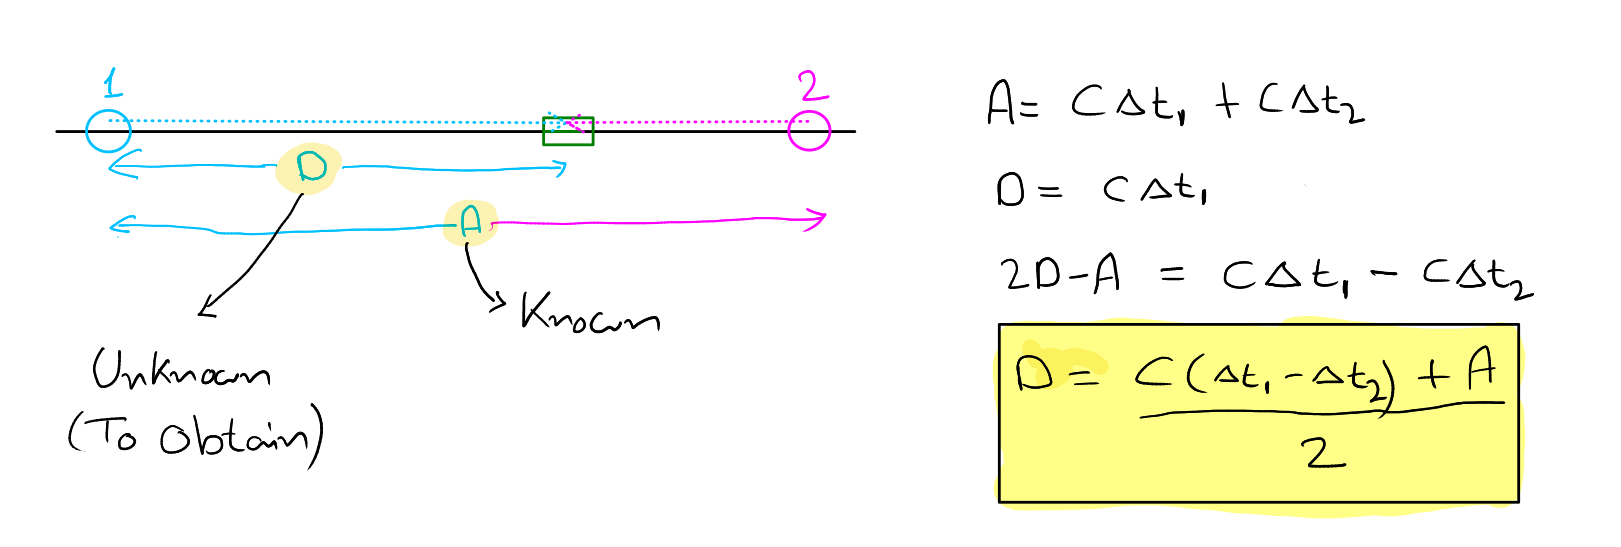 1
2
D
A
Known
Unknown
(To Obtain)
A = CΔt₁ + CΔt₂
D = CΔt₁
2D-A = CΔt₁ - CΔt₂
D = C(Δt₁-Δt₂)+A
2